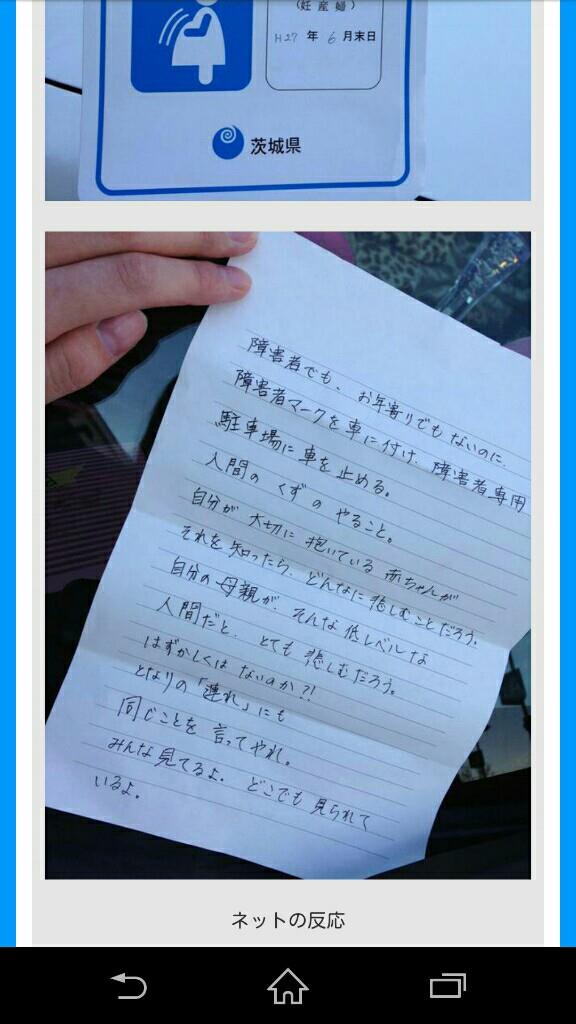 (妊産婦)
H27 年 6 月末日
茨城県
障害者でも、お年寄りでもないのに、
障害者マークを車に付け、障害者専用
駐車場に車を止める。
人間のくずのやること。
自分が大切に抱いている赤ちゃんが
それを知ったら、どんなに悲しむことだろう。
自分の母親が、そんな低レベルな
人間だと、とても悲しむだろう。
はずかしくはないのか?!
となりの「連れ」にも
同じことを言ってやれ。
みんな見てるよ。どこでも見られて
いるよ。
ネットの反応